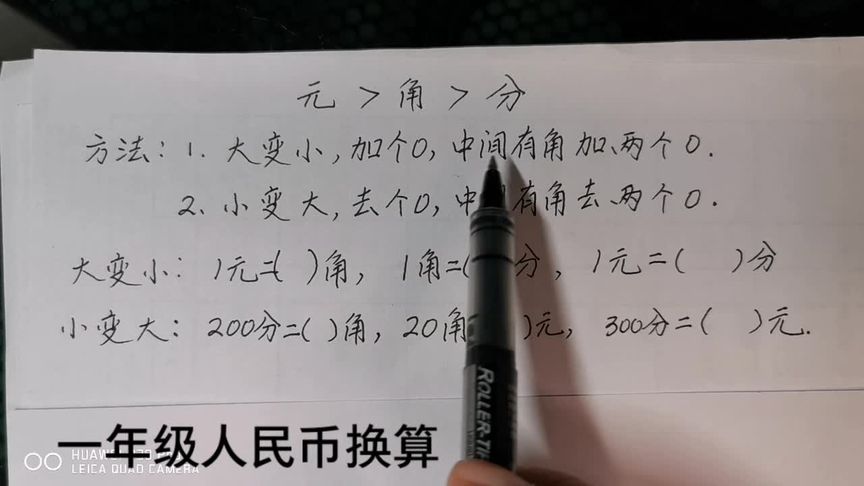 元 > 角 > 分
方法：1. 大变小，加个0，中间有角加、两个0.
2、小变大，去个0，中 有角去、两个0.
大变小：1元=( )角， 1角=( 分， 1元=( )分
小变大：200分=( )角， 20角 )元， 300分=( )元.
ROLLER-TI
一年级人民币换算
HUAWEI
LEICA QUAD CAMERA